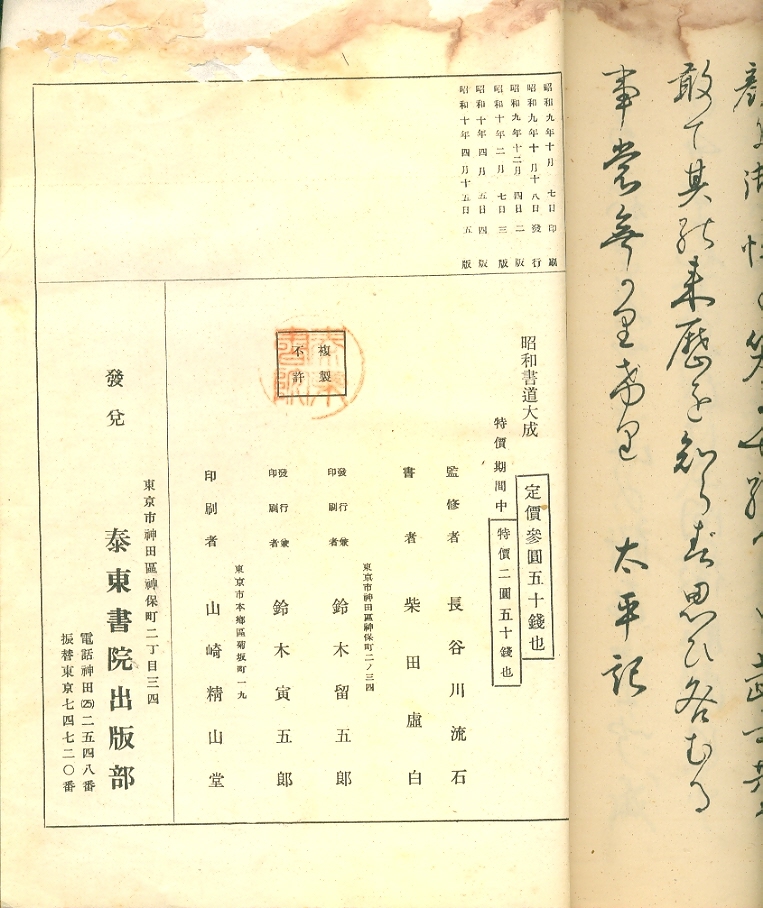 敢て其
来歴を知らず思ひ
事
太平記
昭和九年十月七日印刷
昭和九年十月十八日發行
昭和九年十二月四日二版
昭和十年二月七日三版
昭和十年四月五日四版
昭和十年四月十五日五版
昭和書道大成
定價參圓五十錢也
特價期間中 特價二圓五十錢也
監修者 長谷川流石
書者 柴田盧白
東京市神田區神保町二ノ三四
發行兼印刷者 鈴木留五郎
發行兼印刷者 鈴木寅五郎
東京市本郷區菊坂町一九
印刷者 山崎精山堂
複製
不許
東京市神田區神保町二丁目三四
發兌 泰東書院出版部
電話神田(25)二五四八番
振替東京七四七二〇番